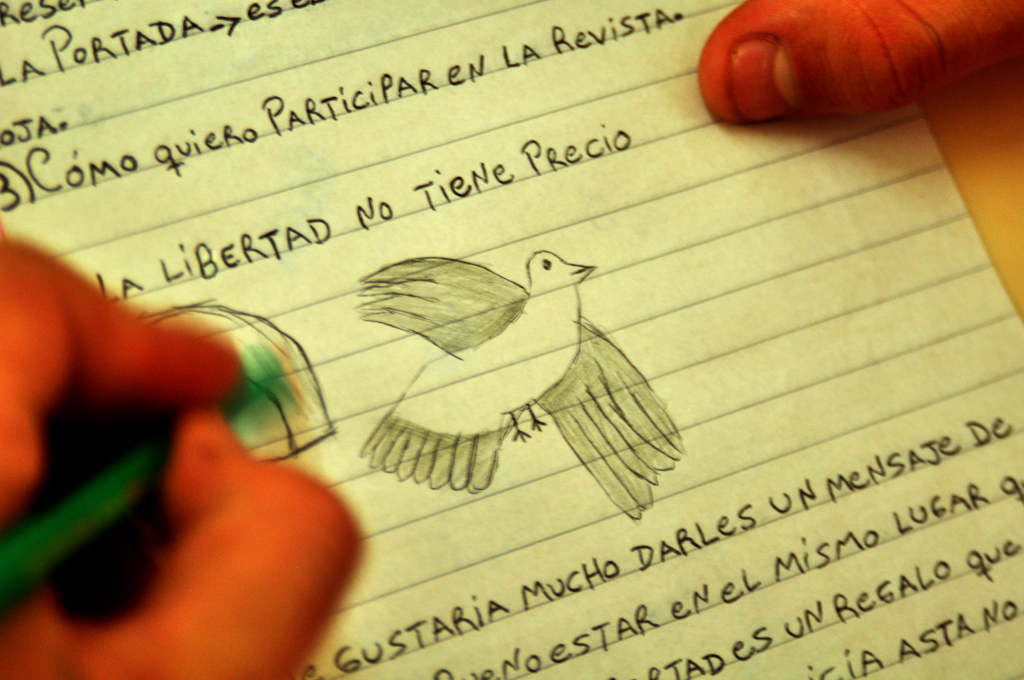 LA PORTADA → es
OJA.
3) CÓMO quiero PARTICIPAR EN LA Revista.
LA LIBERTAD NO TIENE PRECIO
GUSTARIA MUCHO DARLES UN MENSAJE DE
NO ESTAR EN EL MISMO LUGAR
es UN REGALO que
ASTA NO